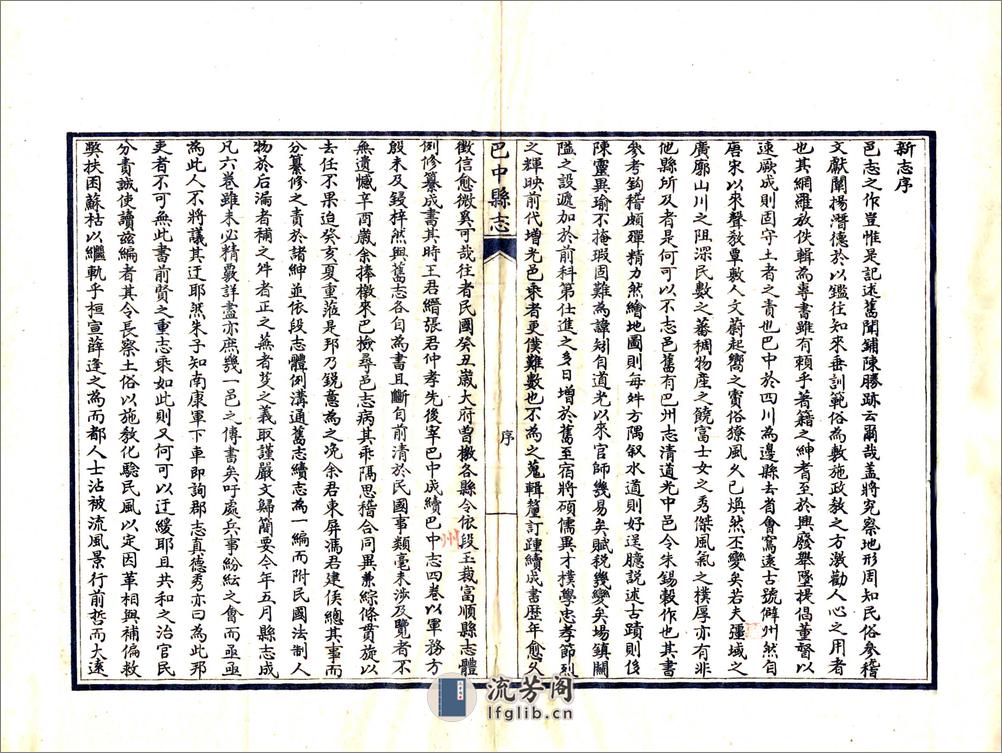 新志序
邑志之作豈惟是記述舊聞鋪陳勝跡云爾哉蓋將究察地形周知民俗參稽
文獻闡揚潛德於以鑑往知來垂訓範俗為敷施政教之方激勸人心之用者
也其網羅放佚輯為專書雖有賴乎著籍之紳耆至於興廢舉墜提倡董督以
速厥成則固守土者之責也巴中於四川為邊縣去省會窵遠古號僻州然自
唐宋以來聲教覃敷人文蔚起嚮之賨俗獠風久已煥然丕變矣若夫疆域之
廣廓山川之阻深民數之蕃稠物產之饒富士女之秀傑風氣之樸厚亦有非
他縣所及者是何可以不志邑舊有巴州志清道光中邑令朱錫穀作也其書
參考鉤稽頗殫精力然繪地圖則每姓方隅叙水道則好逞臆說述古蹟則侈
陳靈異瑜不掩瑕固難為諱矧自道光以來官師幾易矣賦稅幾變矣場鎮關
隘之設遞加於前科第仕進之多日增於舊至宿將碩儒異才樸學忠孝節烈
之輝映前代增光邑乘者更僕難數也不為之蒐輯釐訂踵續成書歷年愈久
巴中縣志
序
徵信愈微異可哉往者民國癸丑歲大府曾檄各縣令依段玉裁富順縣志體
例修纂成書其時王君縉張君仲孝先後宰巴中成續巴中志四卷以軍務方
殷未及鋟梓然與舊志各自為書且斷自前清於民國事類毫未涉及覽者不
無遺憾辛酉歲余捧檄來巴檢尋邑志病其乖隔思稽合同異兼綜條貫旋以
去任不果迨癸亥夏重蒞是邦乃銳意為之浼余君東屏馮君建侯總其事而
分纂修之責於諸紳並依段志體例溝通舊志續志為一編而附民國法制人
物於后漏者補之舛者正之蕪者芟之義取謹嚴文歸簡要今年五月縣志成
凡六卷雖未必精覈詳盡亦庶幾一邑之傳書矣吁處兵事紛紜之會而亟亟
為此人不將議其迂耶然朱子知南康軍下車即詢郡志真德秀亦曰為此邦
吏者不可無此書前賢之重志乘如此則又何可以迂緩耶且共和之治官民
分責誠使讀茲編者其令長察土俗以施教化驗民風以定因革相與補偏救
弊扶困蘇枯以繼軌乎桓宣薛逢之為而都人士沾被流風景行前哲而大遠
州
流芳阁
lfglib.cn